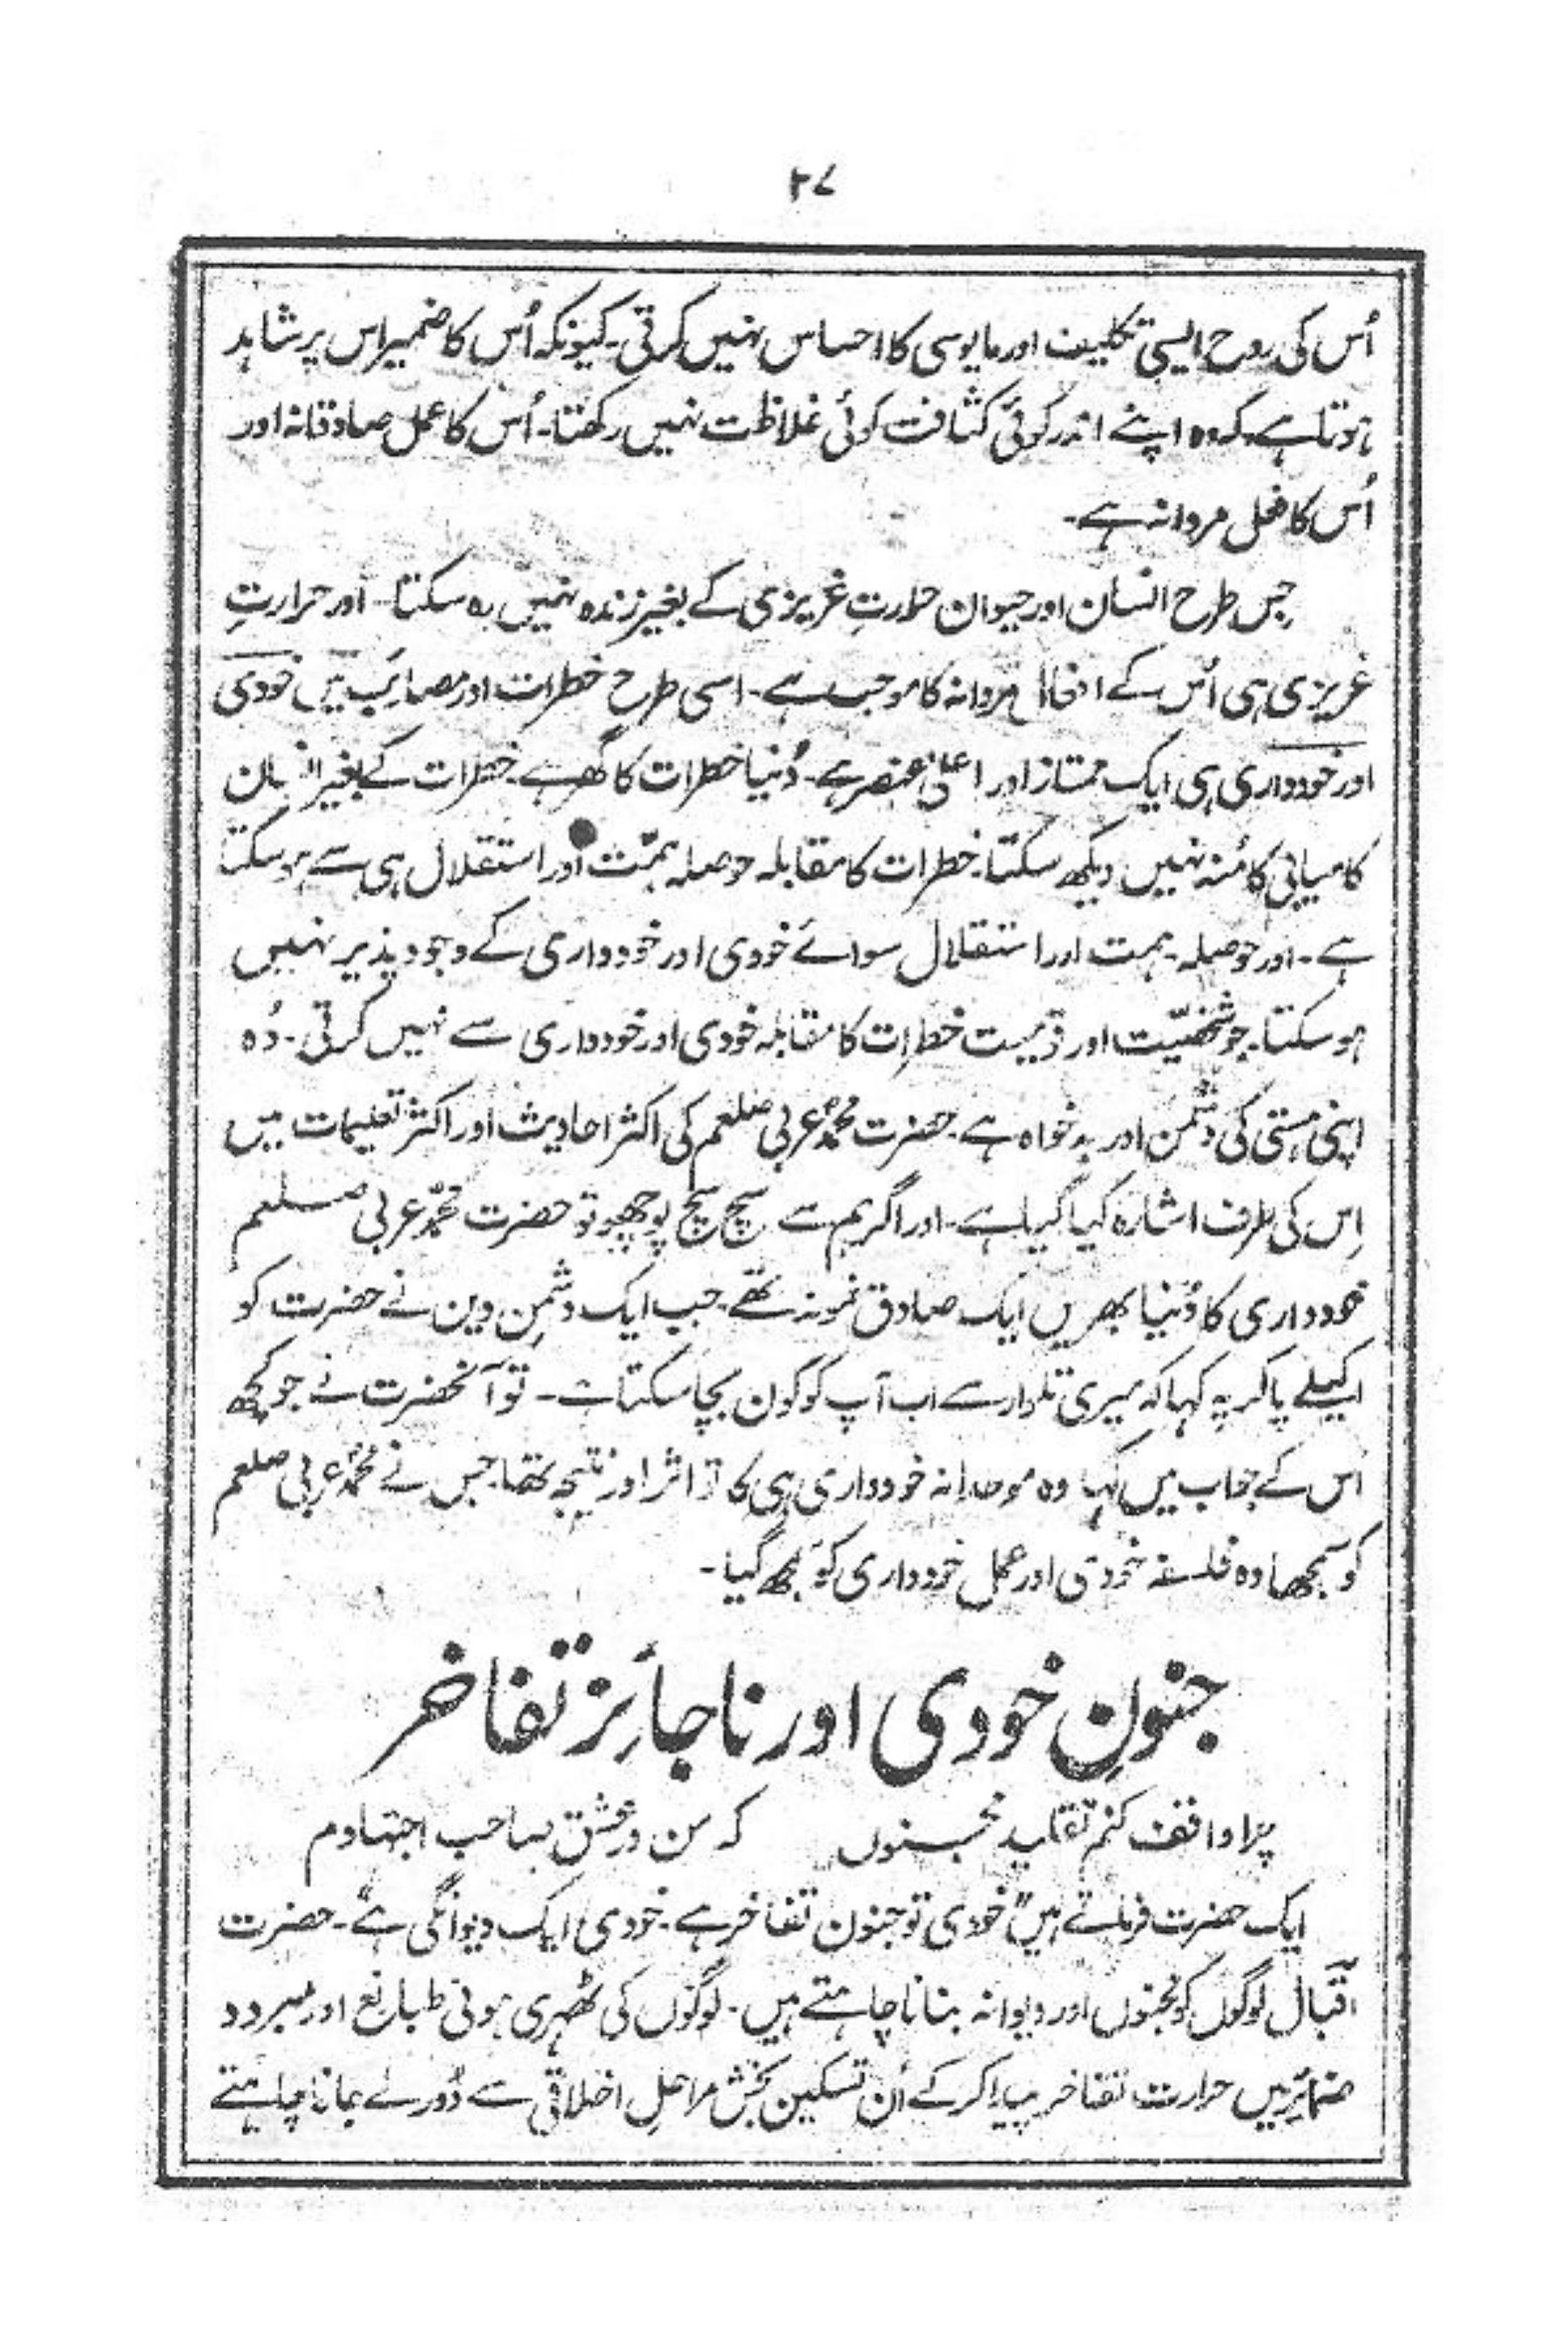 ۴۷
اُس کی روح ایسی تکلیف اور مایوسی کا احساس نہیں کرتی۔ کیونکہ اُس کا ضمیر اس پر شاہد
ہوتا ہے کہ وہ اپنے اندر کوئی کثافت کوئی غلاظت نہیں رکھتا۔ اُس کا عمل صادقانہ اور
اُس کا فعل مردانہ ہے۔
جس طرح انسان اور حیوان حرارتِ غریزی کے بغیر زندہ نہیں رہ سکتا۔ اور حرارتِ
غریزی ہی اُس کے افعال مردانہ کا موجب ہے۔ اسی طرح خطرات اور مصائب میں خودی
اور خودداری ہی ایک ممتاز اور اعلیٰ عنصر ہے۔ دُنیا خطرات کا گھر ہے۔ خطرات کے بغیر انسان
کامیابی کا مُنہ نہیں دیکھ سکتا۔ خطرات کا مقابلہ حوصلہ ہمّت اور استقلال ہی سے ہو سکتا
ہے۔ اور حوصلہ۔ ہمت اور استقلال سوائے خودی اور خودداری کے وجود پذیر نہیں
ہو سکتا۔ جو شخصیّت اور قومیت خطرات کا مقابلہ خودی اور خودداری سے نہیں کرتی۔ وُہ
اپنی ہستی کی دشمن اور بدخواہ ہے۔ حضرت محمدؐ عربی صلعم کی اکثر احادیث اور اکثر تعلیمات میں
اِس کی طرف اشارہ کیا گیا ہے۔ اور اگر ہم سے سچ سچ پوچھو تو حضرت محمدؐ عربی صلعم
خودداری کا دُنیا بھر میں ایک صادق نمونہ تھے۔ جب ایک دشمنِ دین نے حضرت کو
اکیلے پاکر یہ کہا کہ میری تلوار سے اب آپ کو کون بچا سکتا ہے۔ تو آنحضرت نے جو کچھ
اس کے جواب میں کہا وہ موحدانہ خودداری ہی کا اثر اور نتیجہ تھا۔ جس نے محمدؐ عربی صلعم
کو سمجھا وہ فلسفہ خودی اور عمل خودداری کو سمجھ گیا۔
جنونِ خودی اور ناجائز تفاخر
چرا واقف کنم تقلید مجنوں کہ من در عشق صاحب اجتہادم
ایک حضرت فرماتے ہیں "خودی تو جنون تفاخر ہے۔ خودی ایک دیوانگی ہے"۔ حضرت
اقبال لوگوں کو مجنوں اور دیوانہ بنانا چاہتے ہیں۔ لوگوں کی ٹھہری ہوئی طبائع اور سرد
ضمائر میں حرارت تفاخر پیدا کرکے اُن تسکین بخش مراحلِ اخلاقی سے دُور لے جانا چاہتے